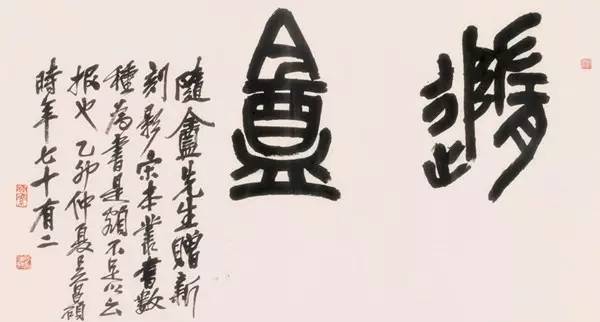 隨盦
隨盦先生贈新
刻影宋本叢書數
種為書是額不足以云
报也乙卯仲夏吴昌碩
時年七十有二